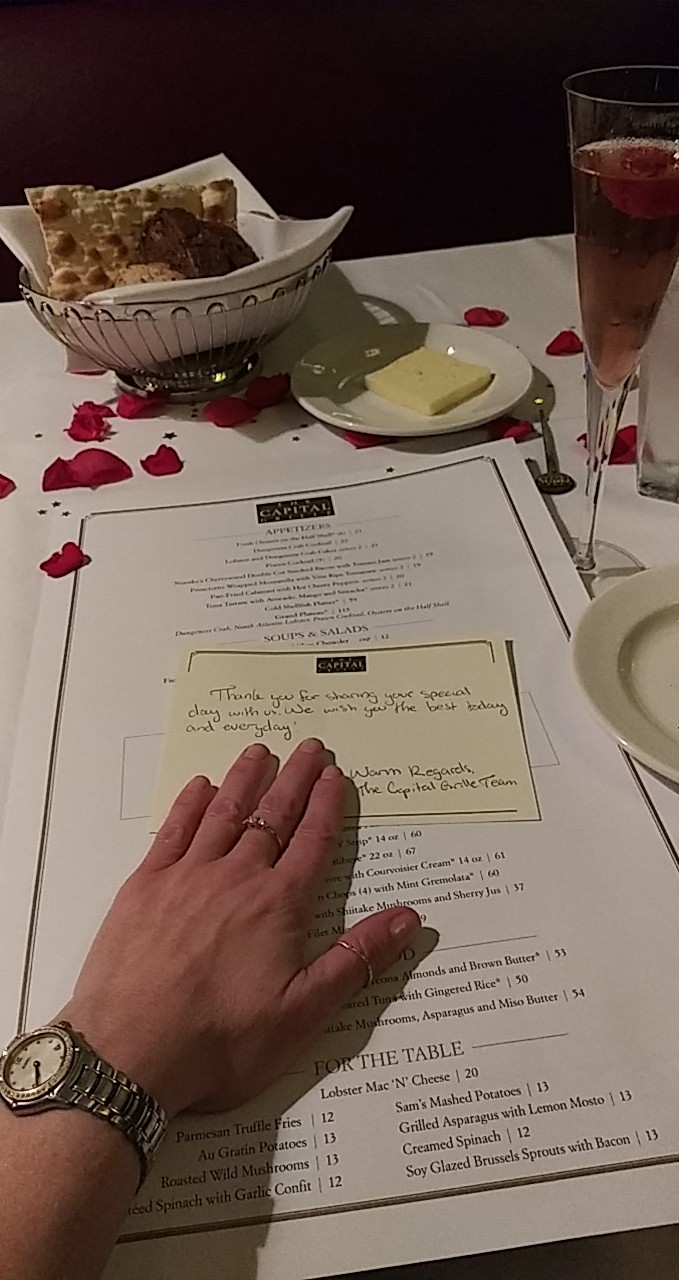 THE
CAPITAL
GRILLE
APPETIZERS
Fresh Oysters on the Half Shell* (6) | 21
Dungeness Crab Cocktail | 22
Lobster and Dungeness Crab Cakes serves 2 | 21
Prawn Cocktail (5) | 20
Nueske's Cherrywood Double Cut Smoked Bacon with Tomato Jam serves 2 | 19
Prosciutto Wrapped Mozzarella with Vine Ripe Tomatoes serves 2 | 19
Pan-Fried Calamari with Hot Cherry Peppers serves 2 | 20
Tuna Tartare with Avocado, Mango and Sriracha* serves 2 | 21
Cold Shellfish Platter* | 59
Grand Plateau* | 115
Dungeness Crab, North Atlantic Lobster, Prawn Cocktail, Oysters on the Half Shell
SOUPS & SALADS
Chowder cup | 12
THE
CAPITAL
GRILLE
Thank you for sharing your special
day with us. We wish you the best today
and everyday!
Warm Regards,
The Capital Grille Team
Strip* 14 oz | 60
22 oz | 67
with Courvoisier Cream* 14 oz | 61
Chops (4) with Mint Gremolata* | 60
with Shiitake Mushrooms and Sherry Jus | 37
Filet
Almonds and Brown Butter* | 53
Tuna with Gingered Rice* | 50
Mushrooms, Asparagus and Miso Butter | 54
FOR THE TABLE
Lobster Mac 'N' Cheese | 20
Parmesan Truffle Fries | 12
Au Gratin Potatoes | 13
Roasted Wild Mushrooms | 13
téed Spinach with Garlic Confit | 12
Sam's Mashed Potatoes | 13
Grilled Asparagus with Lemon Mosto | 13
Creamed Spinach | 12
Soy Glazed Brussels Sprouts with Bacon | 13